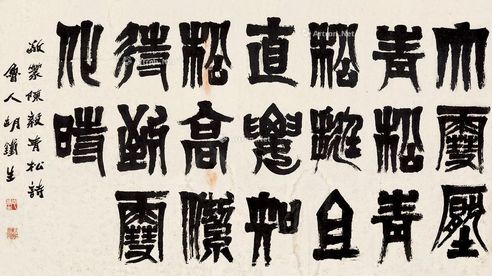 大雪壓
青松青
松挺且
直要知
松高潔
待到雪
化時
敬篆陳毅青松詩
魯人胡鐵生
Artron.Net